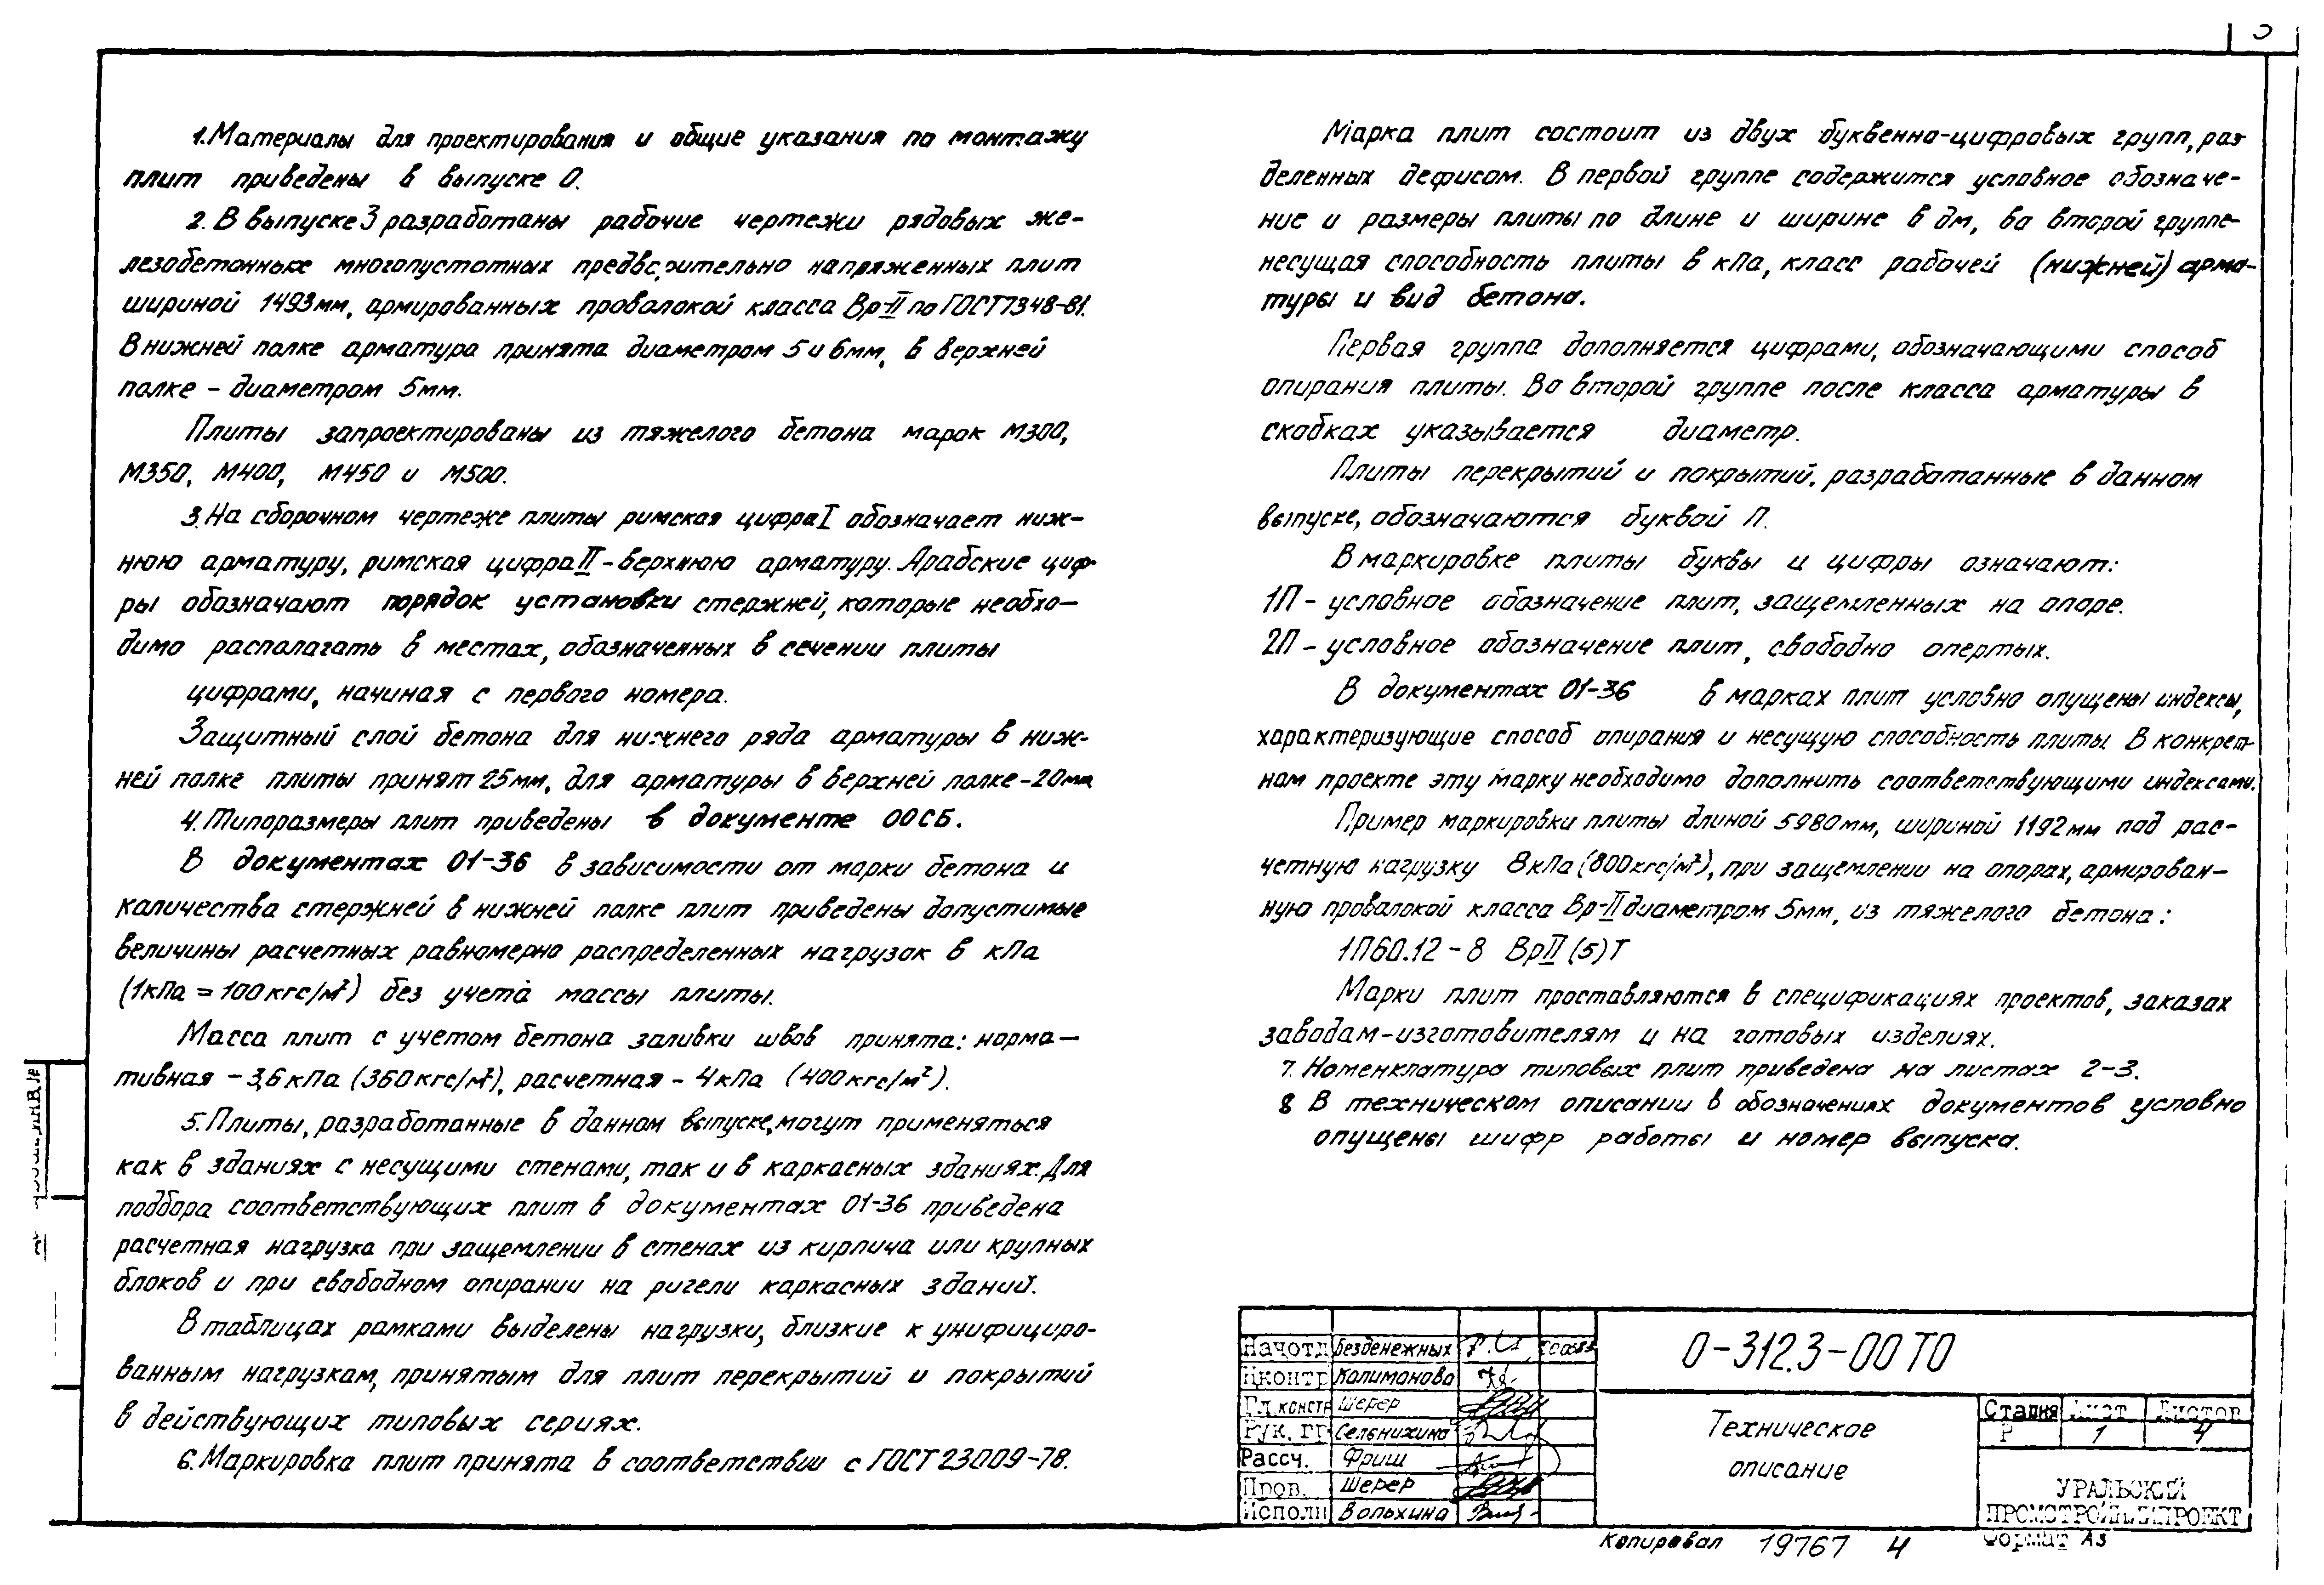 1. Материалы для проектирования и общие указания по монтажу
плит приведены в выпуске 0.
2. В выпуске 3 разработаны рабочие чертежи рядовых же-
лезобетонных многопустотных предварительно напряженных плит
шириной 1493мм, армированных проволокой класса Вр-II по ГОСТ 7348-81.
В нижней полке арматура принята диаметром 5 и 6мм, в верхней
полке - диаметром 5мм.
Плиты запроектированы из тяжелого бетона марок М300,
М350, М400, М450 и М500.
3. На сборочном чертеже плиты римская цифра I обозначает ниж-
нюю арматуру, римская цифра II - верхнюю арматуру. Арабские циф-
ры обозначают порядок установки стержней, которые необхо-
димо располагать в местах, обозначенных в сечении плиты
цифрами, начиная с первого номера.
Защитный слой бетона для нижнего ряда арматуры в ниж-
ней полке плиты принят 25мм, для арматуры в верхней полке - 20мм
4. Типоразмеры плит приведены в документе 00СБ.
В документах 01-36 в зависимости от марки бетона и
количества стержней в нижней полке плит приведены допустимые
величины расчетных равномерно распределенных нагрузок в кПа
(1кПа = 100кгс/м²) без учета массы плиты.
Масса плит с учетом бетона заливки швов принята: норма-
тивная - 3,6 кПа (360кгс/м²), расчетная - 4кПа (400кгс/м²).
5. Плиты, разработанные в данном выпуске, могут применяться
как в зданиях с несущими стенами, так и в каркасных зданиях. Для
подбора соответствующих плит в документах 01-36 приведена
расчетная нагрузка при защемлении в стенах из кирпича или крупных
блоков и при свободном опирании на ригели каркасных зданий.
В таблицах рамками выделены нагрузки, близкие к унифициро-
ванным нагрузкам, принятым для плит перекрытий и покрытий
в действующих типовых сериях.
6. Маркировка плит принята в соответствии с ГОСТ 23009-78.
Марка плит состоит из двух буквенно-цифровых групп, раз
деленных дефисом. В первой группе содержится условное обозначе-
ние и размеры плиты по длине и ширине в дм, во второй группе-
несущая способность плиты в кПа, класс рабочей (нижней) арма-
туры и вид бетона.
Первая группа дополняется цифрами, обозначающими способ
опирания плиты. Во второй группе после класса арматуры в
скобках указывается диаметр.
Плиты перекрытий и покрытий, разработанные в данном
выпуске, обозначаются буквой П.
В маркировке плиты буквы и цифры означают:
1П - условное обозначение плит, защемленных на опоре.
2П - условное обозначение плит, свободно опертых.
В документах 01-36 в марках плит условно опущены индексы,
характеризующие способ опирания и несущую способность плиты. В конкрет-
ном проекте эту марку необходимо дополнить соответствующими индексами.
Пример маркировки плиты длиной 5980мм, шириной 1192мм под рас-
четную нагрузку 8кПа (800кгс/м²), при защемлении на опорах, армирован-
ную проволокой класса Вр-II диаметром 5мм, из тяжелого бетона:
1П60.12 - 8 ВрII (5)Т
Марки плит проставляются в спецификациях проектов, заказах
заводам-изготовителям и на готовых изделиях.
7. Номенклатура типовых плит приведена на листах 2-3.
8 В техническом описании в обозначениях документов условно
опущены шифр работы и номер выпуска.
Начотд Безденежных
Нконтр Калиманова
Гл. констр Шерер
Рук. гр Сельнихина
Рассч. Фриш
Пров. Шерер
Исполн Вольхина
0-312.3-00 ТО
Техническое
описание
Стадия Лист Листов
Р 1 4
УРАЛЬСКИЙ
ПРОМСТРОЙНИИПРОЕКТ
Копировал 19767 4 Формат А3